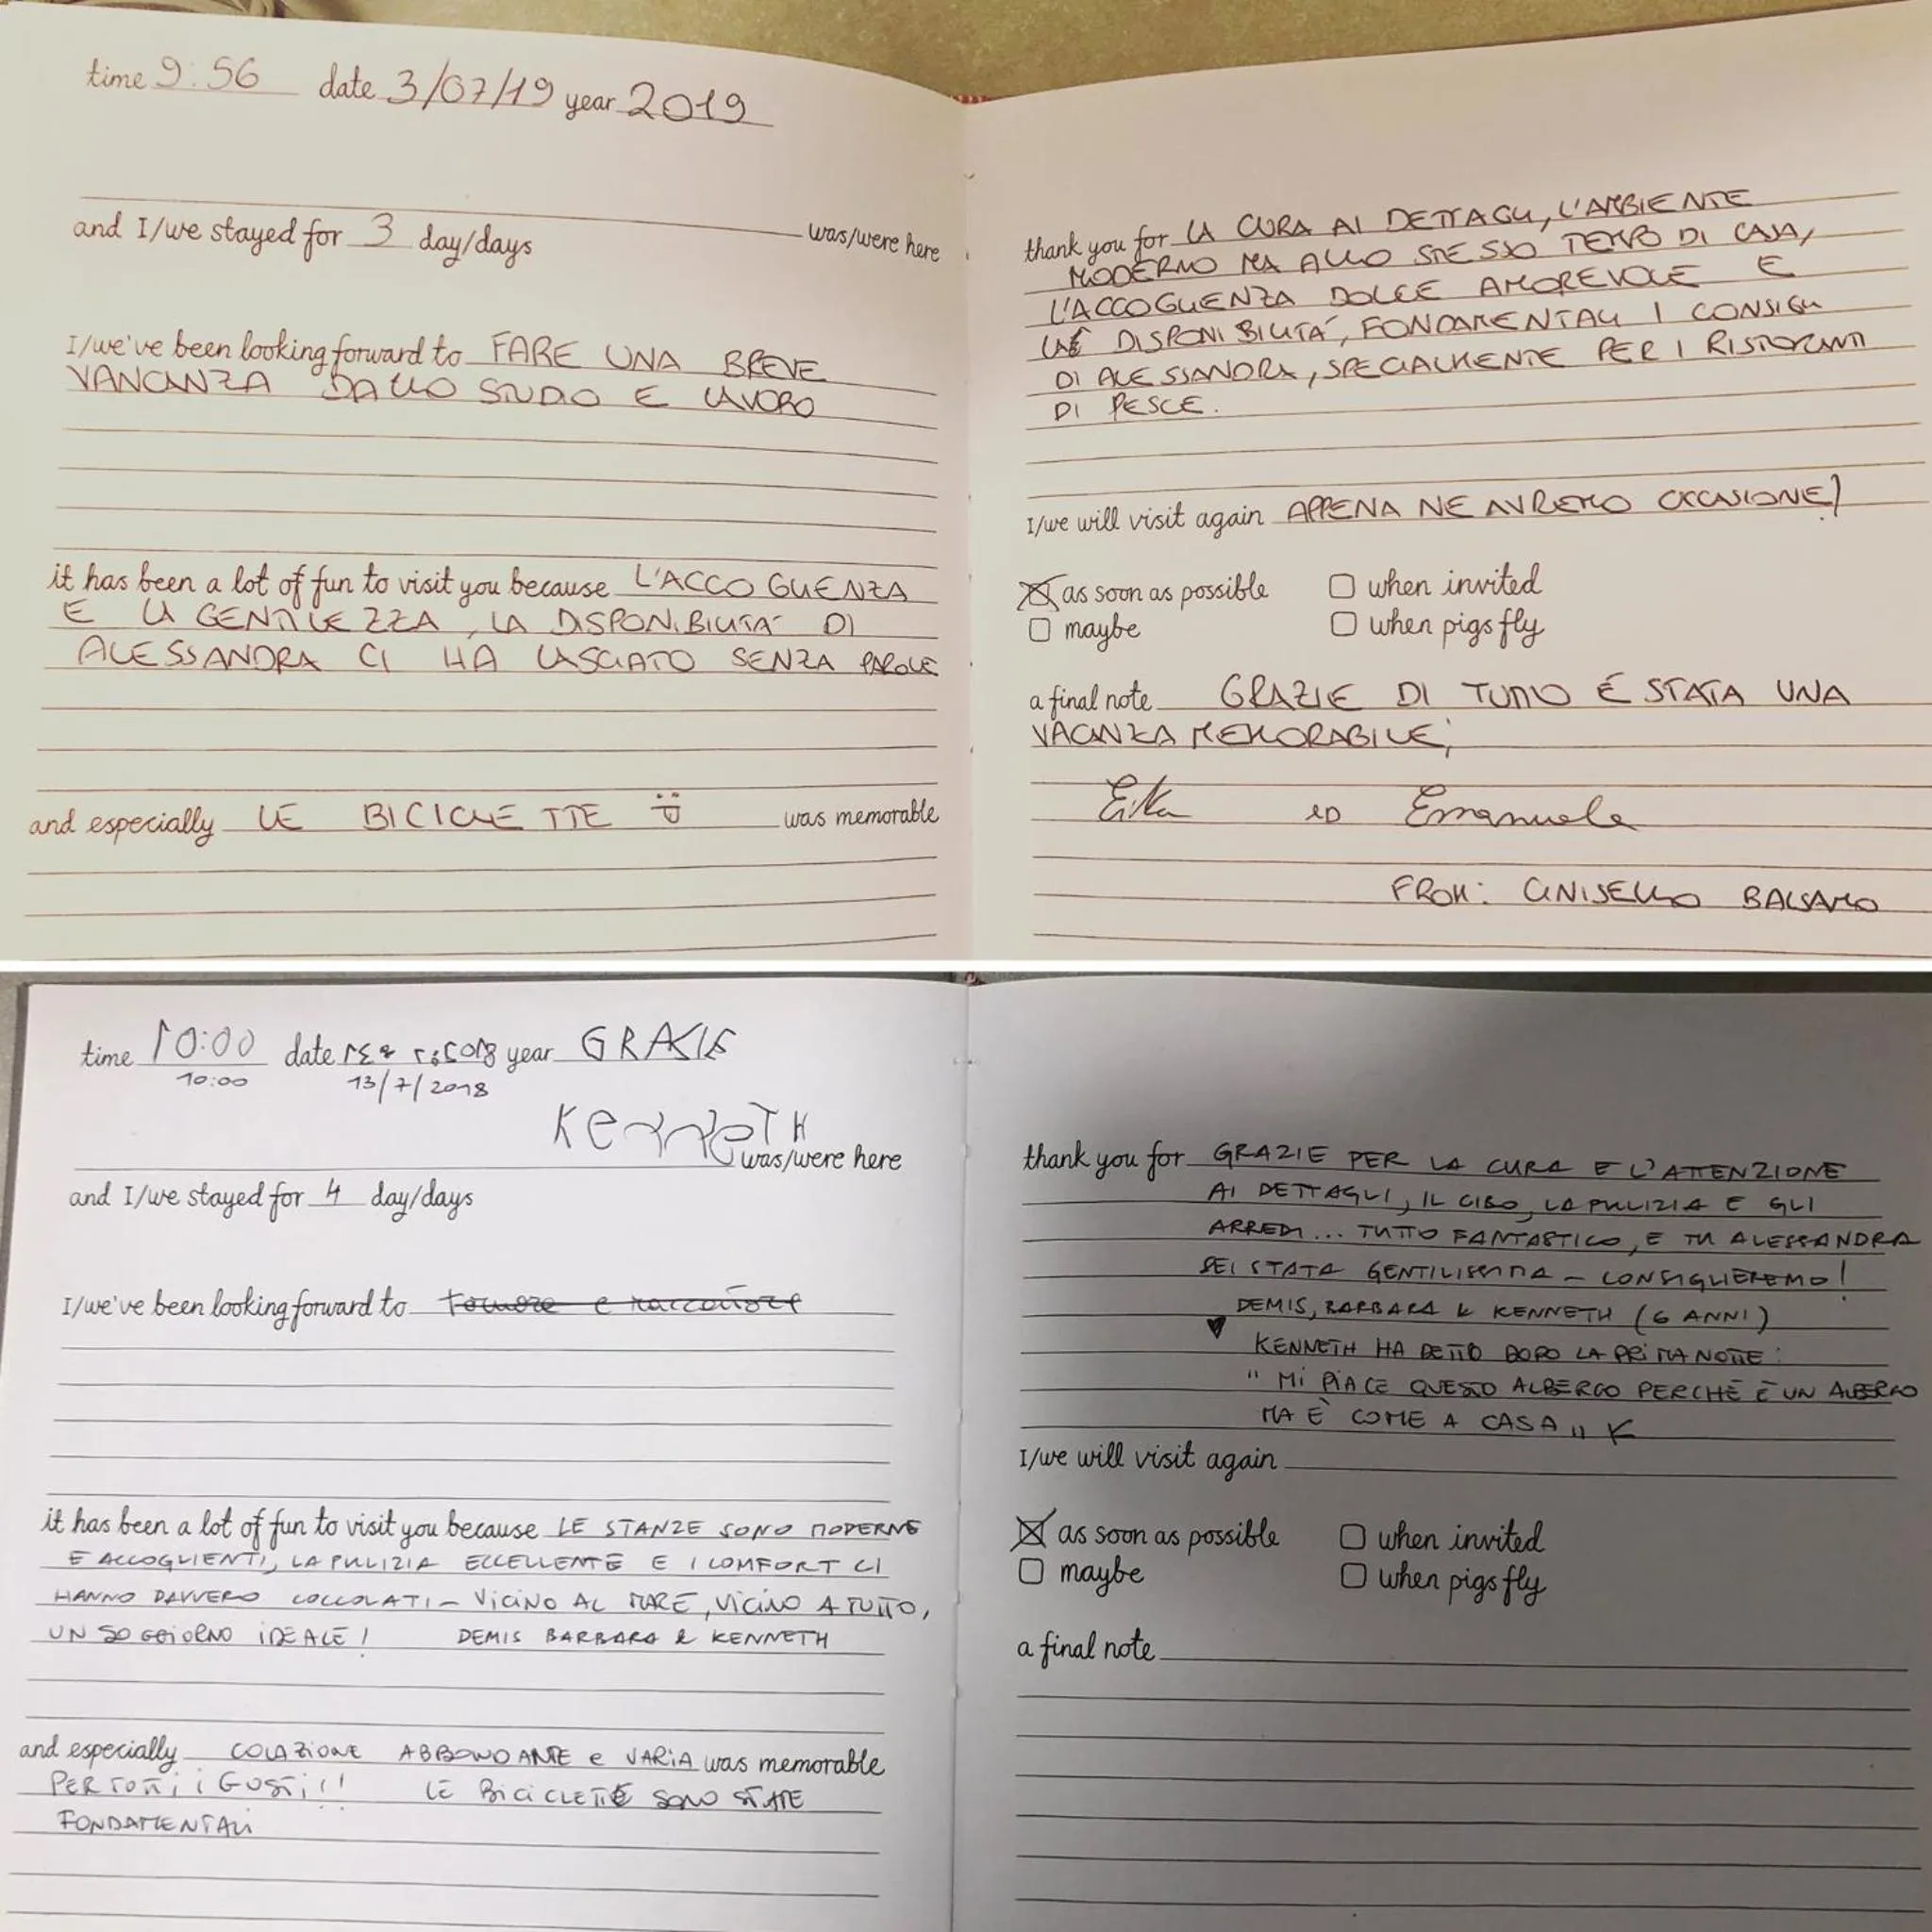 time 9:56 date 3/07/19 year 2019
was/were here
and I/we stayed for 3 day/days
I/we've been looking forward to FARE UNA BREVE
VANCANZA DALLO STUDIO E LAVORO
it has been a lot of fun to visit you because L'ACCOGLIENZA
E LA GENTILEZZA, LA DISPONIBILITÀ DI
ALESSANDRA CI HA LASCIATO SENZA PAROLE
and especially LE BICICLETTE was memorable
thank you for LA CURA AI DETTAGLI, L'AMBIENTE
MODERNO MA ALLO STESSO TEMPO DI CASA,
L'ACCOGLIENZA DOLCE AMOREVOLE E
LA DISPONIBILITÀ, FONDAMENTALI I CONSIGLI
DI ALESSANDRA, SPECIALMENTE PER I RISTORANTI
DI PESCE.
I/we will visit again APPENA NE AVREMO OCCASIONE!
as soon as possible when invited
maybe when pigs fly
a final note GRAZIE DI TUTTO É STATA UNA
VACANZA MEMORABILE,
Erika ED Emanuele
FROM: CINISELLO BALSAMO
time 10:00 date year GRASIE
10:00 13/7/2018
KENNETH
was/were here
and I/we stayed for 4 day/days
I/we've been looking forward to
it has been a lot of fun to visit you because LE STANZE SONO MODERNE
E ACCOGLIENTI, LA PULIZIA ECCELLENTE E I COMFORT CI
HANNO DAVVERO COCCOLATI - VICINO AL MARE, VICINO A TUTTO,
UN SOGGIORNO IDEALE! DEMIS BARBARA & KENNETH
and especially COLAZIONE ABBONDANTE e VARIA was memorable
PER TUTTI I GUSTI!!! LE BICICLETTE SONO STATE
FONDAMENTALI
thank you for GRAZIE PER LA CURA E L'ATTENZIONE
AI DETTAGLI, IL CIBO, LA PULIZIA E GLI
ARREDI... TUTTO FANTASTICO, E TU ALESSANDRA
SEI STATA GENTILISSIMA - CONSIGLIEREMO!
DEMIS, BARBARA & KENNETH (6 ANNI)
KENNETH HA DETTO DOPO LA PRIMA NOTTE:
"MI PIACE QUESTO ALBERGO PERCHÉ È UN ALBERGO
MA È COME A CASA" K
I/we will visit again
as soon as possible when invited
maybe when pigs fly
a final note